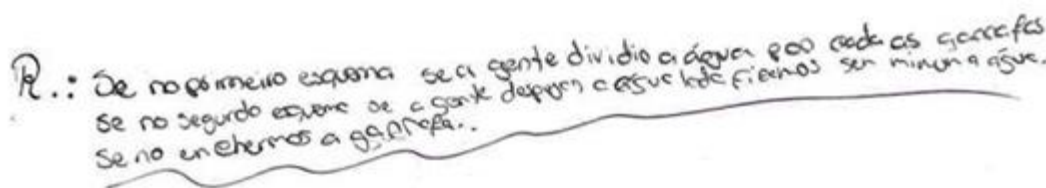 R.: Se no pormeiro esquema se a gente dividio a água poo cada as garrafas
se no segundo esquema se a gente despegen a água toda ficamos sen minum a água.
Se no enchermos a garrafa..